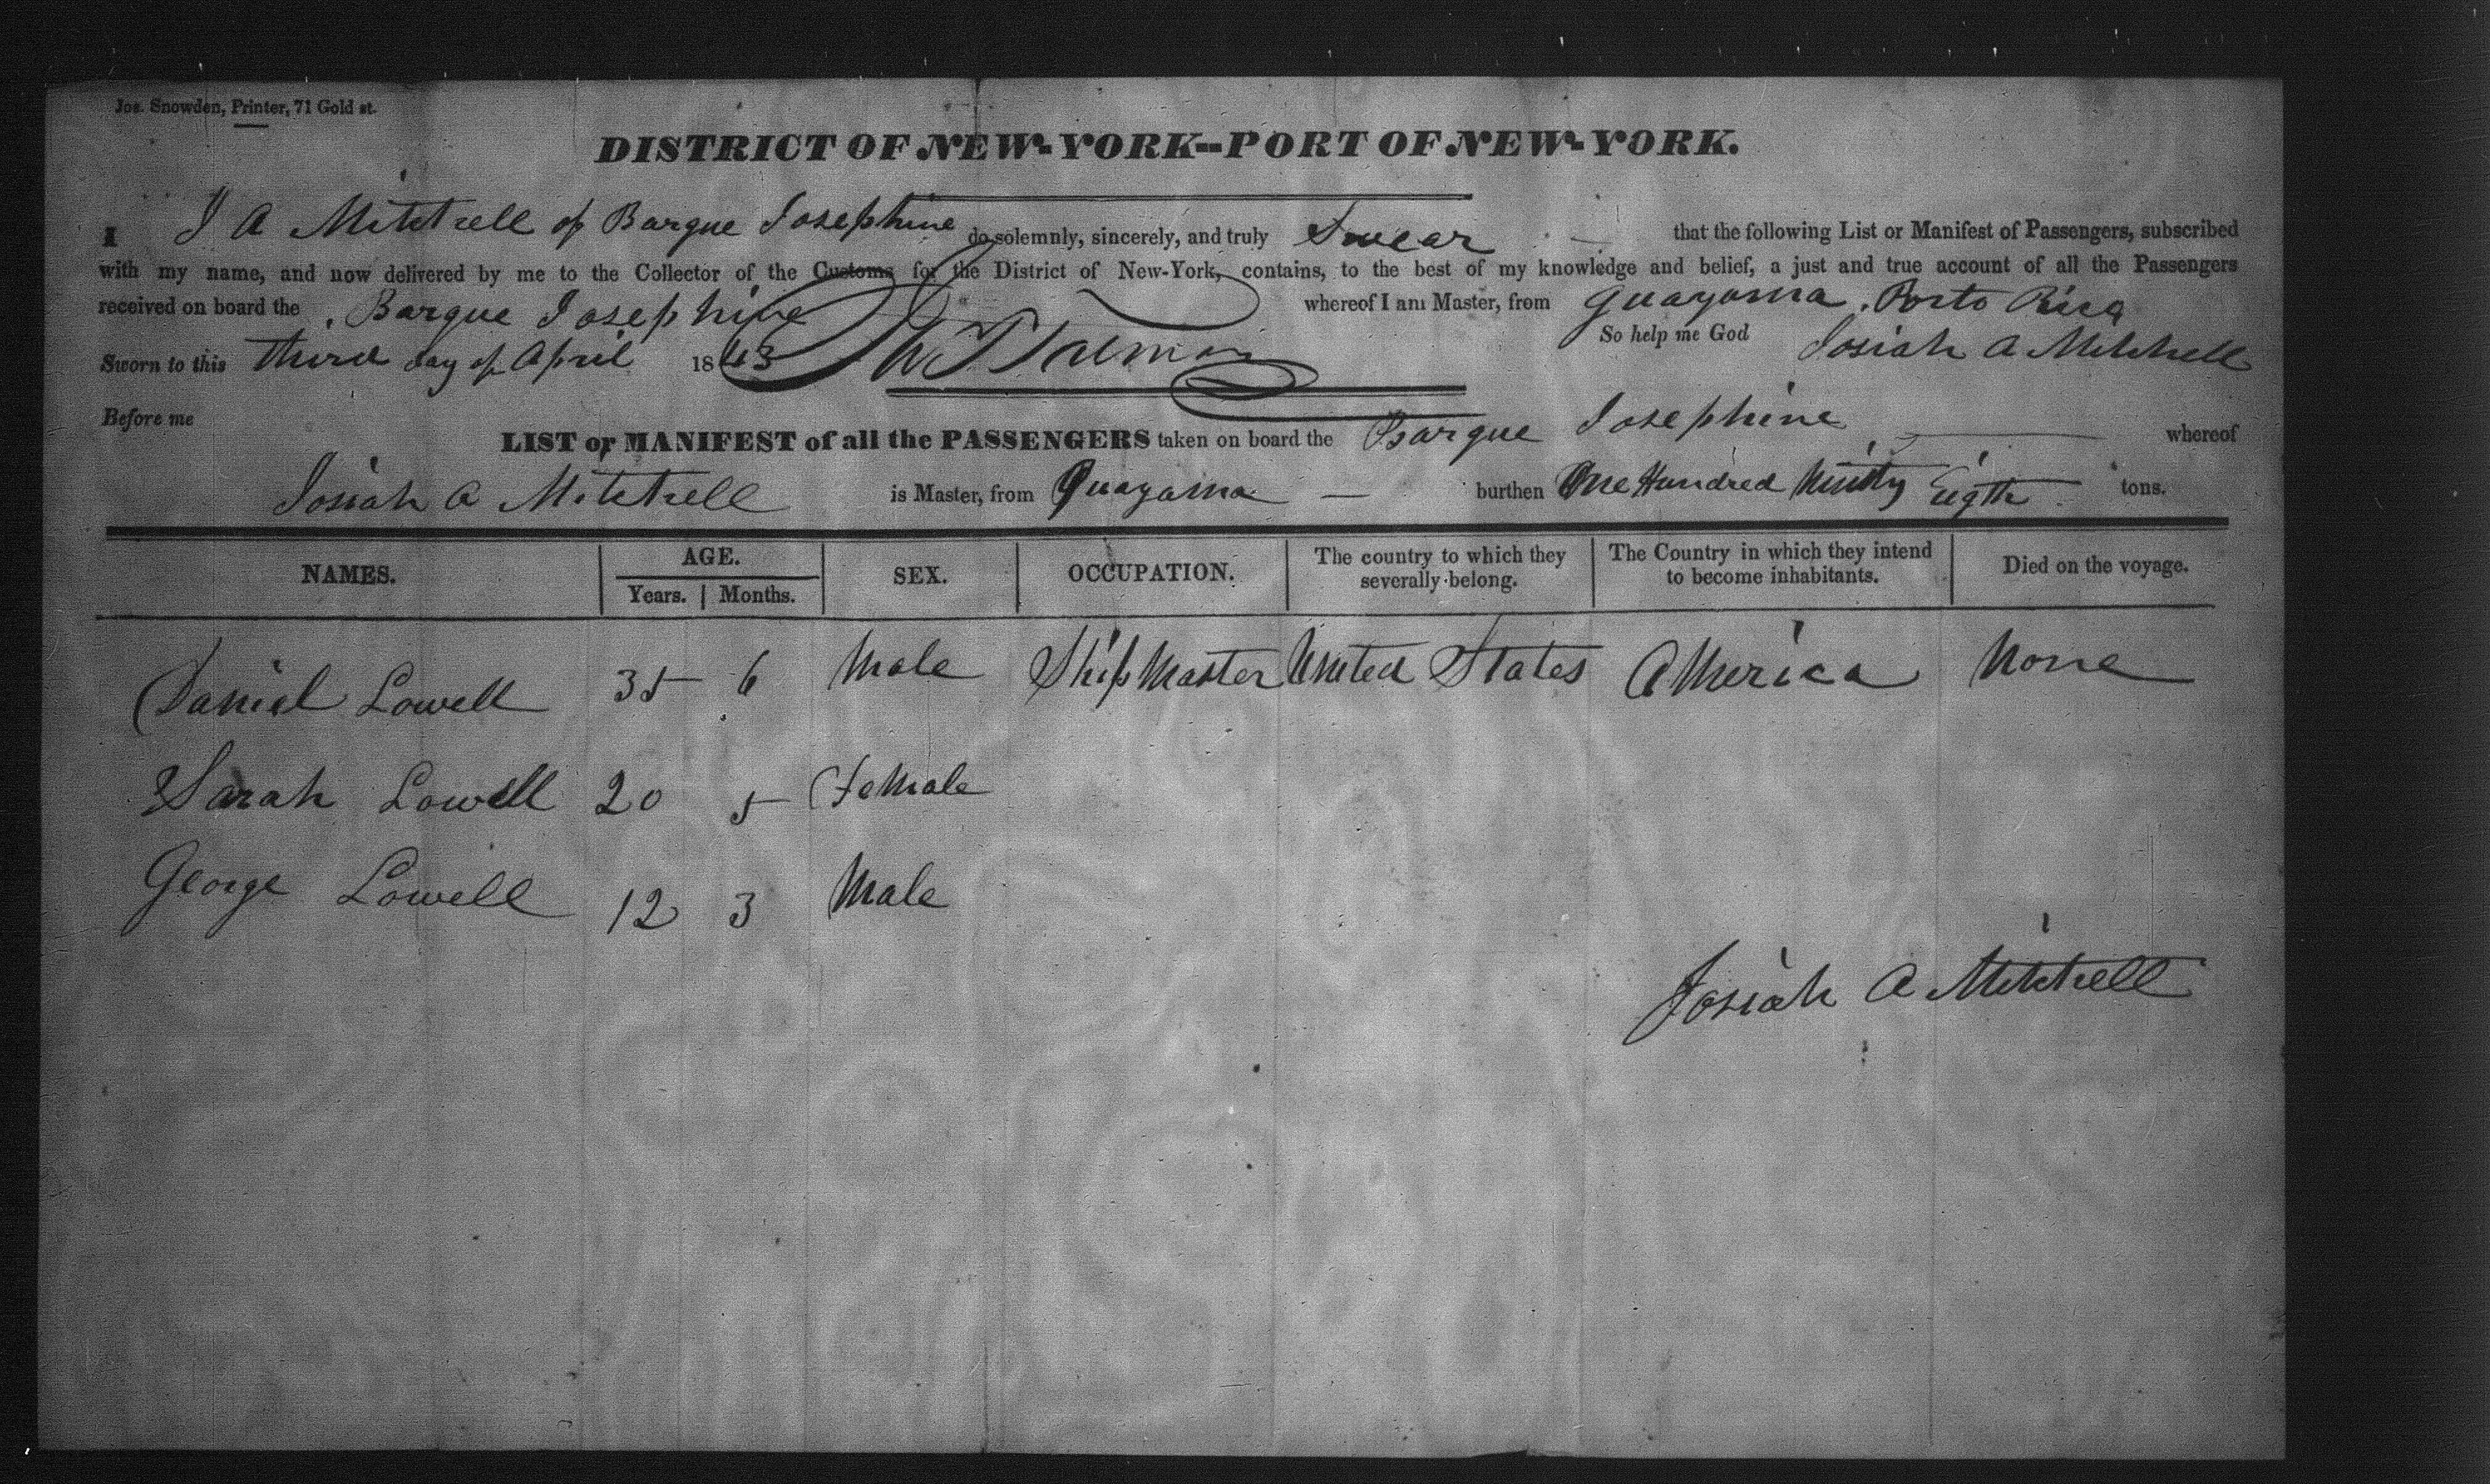 Jos. Snowden, Printer, 71 Gold st.
DISTRICT OF NEW-YORK--PORT OF NEW-YORK.
I J A Mitchell of Barque Josephine do solemnly, sincerely, and truly Swear that the following List or Manifest of Passengers, subscribed
with my name, and now delivered by me to the Collector of the Customs for the District of New-York, contains, to the best of my knowledge and belief, a just and true account of all the Passengers
received on board the Barque Josephine whereof I am Master, from Guayama, Porto Rico
So help me God Josiah A Mitchell
Sworn to this third day of April 1843
Before me
LIST or MANIFEST of all the PASSENGERS taken on board the Barque Josephine whereof
Josiah A Mitchell is Master, from Guayama burthen One Hundred Ninity Eigth tons.
NAMES. AGE. SEX. OCCUPATION. The country to which they severally belong. The Country in which they intend to become inhabitants. Died on the voyage.
Years. Months.
Daniel Lowell 35 6 Male Ship Master United States America None
Sarah Lowell 20 5 Female
George Lowell 12 3 Male
Josiah A Mitchell